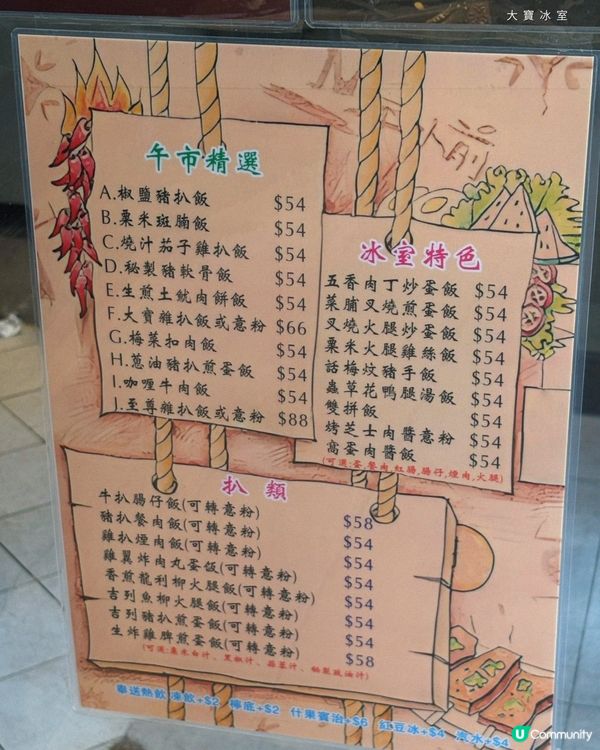 大寶冰室
午市精選
A.椒鹽豬扒飯 $54
B.粟米斑腩飯 $54
C.燒汁茄子雞扒飯 $54
D.秘製豬軟骨飯 $54
E.生煎土魷肉餅飯 $54
F.大寶雜扒飯或意粉 $66
G.梅菜扣肉飯 $54
H.蔥油豬扒煎蛋飯 $54
I.咖喱牛肉飯 $54
J.至尊雜扒飯或意粉 $88
冰室特色
五香肉丁炒蛋飯 $54
菜脯叉燒煎蛋飯 $54
叉燒火腿炒蛋飯 $54
粟米火腿雞絲飯 $54
話梅炆豬手飯 $54
蟲草花鴨腿湯飯 $54
雙拼飯 $54
烤芝士肉醬意粉 $54
窩蛋肉醬飯 $54
(可選:蛋,餐肉,紅腸,腸仔,煙肉,火腿)
扒類
牛扒腸仔飯(可轉意粉) $58
豬扒餐肉飯(可轉意粉) $54
雞扒煙肉飯(可轉意粉) $54
雞翼炸肉丸蛋飯(可轉意粉) $54
香煎龍利柳火腿飯(可轉意粉) $54
吉列魚柳火腿飯(可轉意粉) $54
吉列豬扒煎蛋飯(可轉意粉) $54
生炸雞脾煎蛋飯(可轉意粉) $58
(可選:粟米白汁、黑椒汁、蒜蓉汁、秘製豉油汁)
奉送熱飲 凍飲+$2 檸底+$2 什果賓治+$6 紅豆冰+$4 汽水+$4
U Community